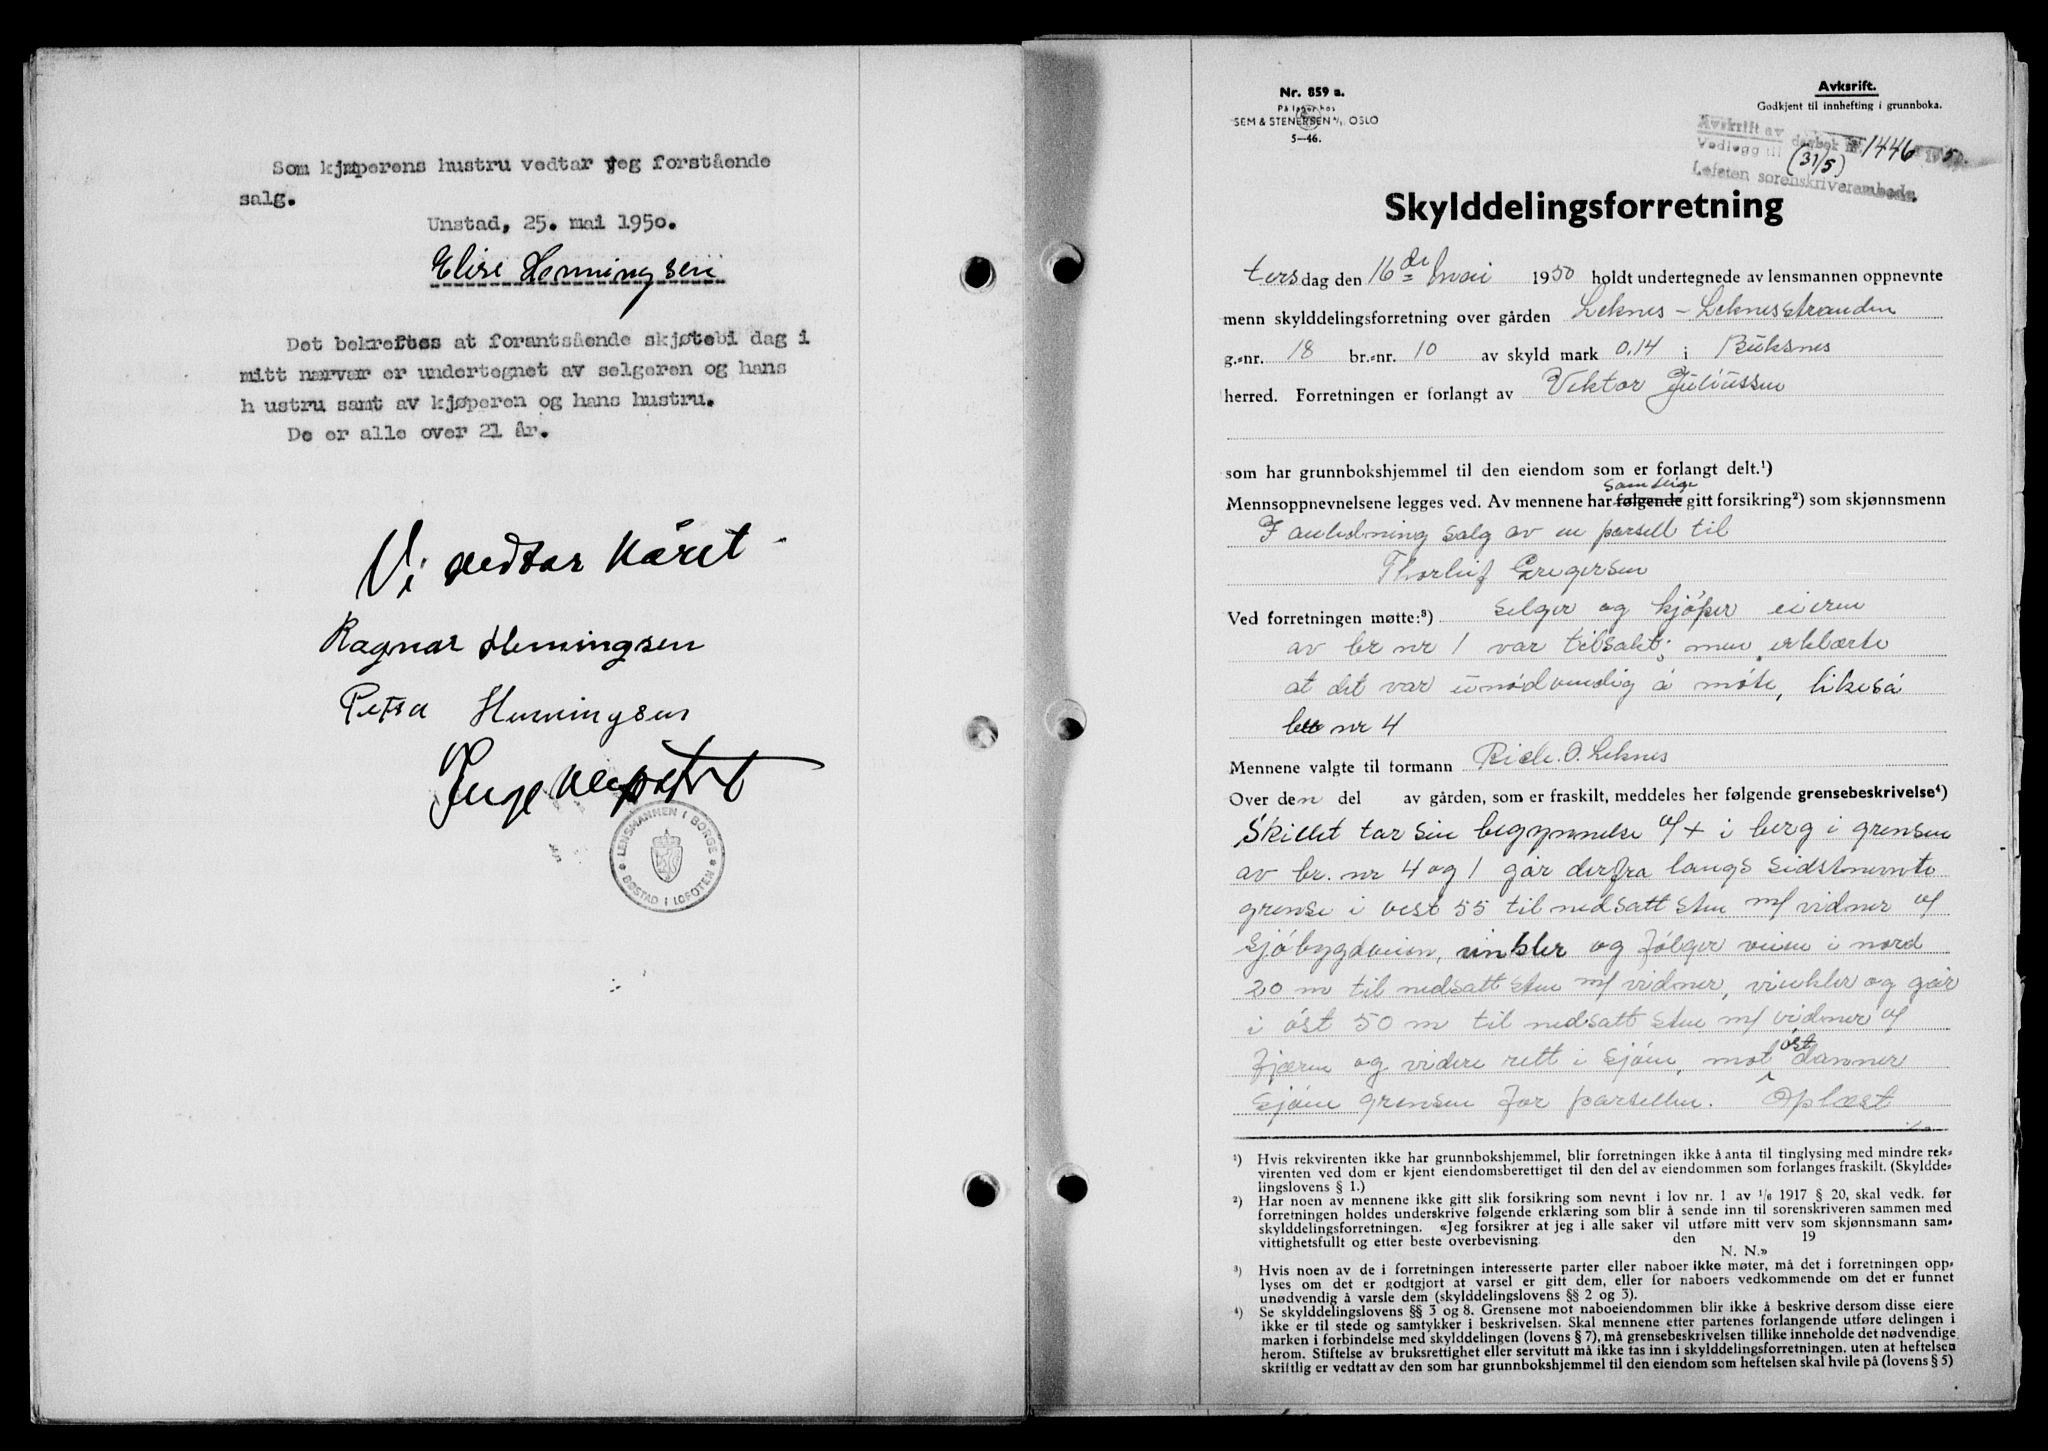 Som kjøperens hustru vedtar jeg forstående
salg.
Unstad, 25. mai 1950.
Elise Henningsen
Det bekreftes at forantsående skjøtebi dag i
mitt nærvær er undertegnet av selgeren og hans
h ustru samt av kjøperen og hans hustru.
De er alle over 21 år.
Vi vedtar kåret
Ragnar Hemingsen
Petra Hemingsen
Inge
LENSMANNEN I BORGE
BØSTAD I LOFOTEN
Nr. 859 a.
På lager hos
SEM & STENERSEN A/S, OSLO
5-46.
Avksrift.
Godkjent til innhefting i grunnboka.
Avskrift av dagbok nr. 1446 1950.
Vedlegg til (31/5)
Lofoten sorenskriverembede.
Skylddelingsforretning
tirsdag den 16de mai 1950 holdt undertegnede av lensmannen oppnevnte
menn skylddelingsforretning over gården Leknes - Leknesstranden
g.-nr. 18 br.-nr. 10 av skyld mark 0,14 i Buksnes
herred. Forretningen er forlangt av Viktor Juliussen
som har grunnbokshjemmel til den eiendom som er forlangt delt.¹)
Mennsoppnevnelsene legges ved. Av mennene har følgende samtlige gitt forsikring²) som skjønnsmenn
I anledning salg av en parsell til
Thorleif Gregersen
Ved forretningen møtte:³) selger og kjøper eieren
av br nr 1 var tilsakt; men erklærte
at det var unødvendig å møte, likeså
br nr 4
Mennene valgte til formann O. Leknes
Over den del av gården, som er fraskilt, meddeles her følgende grensebeskrivelse⁴)
Skillet tar sin begynnelse v/ + i berg i grensen
av br. nr 4 og 1 går derfra langs sidstnevnte
grense i vest 55 til nedsatt sten m/ vidner v/
sjøbygdveien, vinkler og følger veien i nord
20 m til nedsatt sten m/ vidner, vinkler og går
i øst 50 m til nedsatt sten m/ vidner v/
fjæren og videre rett i sjøen, mot øst danner
sjøen grensen for parsellen. Oplæst
./.
¹) Hvis rekvirenten ikke har grunnbokshjemmel, blir forretningen ikke å anta til tinglysing med mindre rek-
virenten ved dom er kjent eiendomsberettiget til den del av eiendommen som forlanges fraskilt. (Skyldde-
lingslovens § 1.)
²) Har noen av mennene ikke gitt slik forsikring som nevnt i lov nr. 1 av 1/6 1917 § 20, skal vedk. før
forretningen holdes underskrive følgende erklæring som blir å sende inn til sorenskriveren sammen med
skylddelingsforretningen. «Jeg forsikrer at jeg i alle saker vil utføre mitt verv som skjønnsmann sam-
vittighetsfullt og etter beste overbevisning den 19
N. N.»
³) Hvis noen av de i forretningen interesserte parter eller naboer ikke møter, må det i forretningen opp-
lyses om det er godtgjort at varsel er gitt dem, eller for naboers vedkommende om det er funnet
unødvendig å varsle dem (skylddelingslovens §§ 2 og 3).
⁴) Se skylddelingslovens §§ 3 og 8. Grensene mot naboeiendommen blir ikke å beskrive dersom disse eiere
ikke er til stede og samtykker i beskrivelsen. Skal mennene etter partenes forlangende utføre delingen i
marken i forbindelse med skylddelingen (lovens § 7), må grensebeskrivelsen tillike inneholde det nødvendige
herom. Stiftelse av bruksrettighet eller servitutt må ikke tas inn i skylddelingsforretningen, uten at heftelsen
skriftlig er vedtatt av den som har grunnbokshjemmel til den eiendom som heftelsen skal hvile på (lovens § 5)